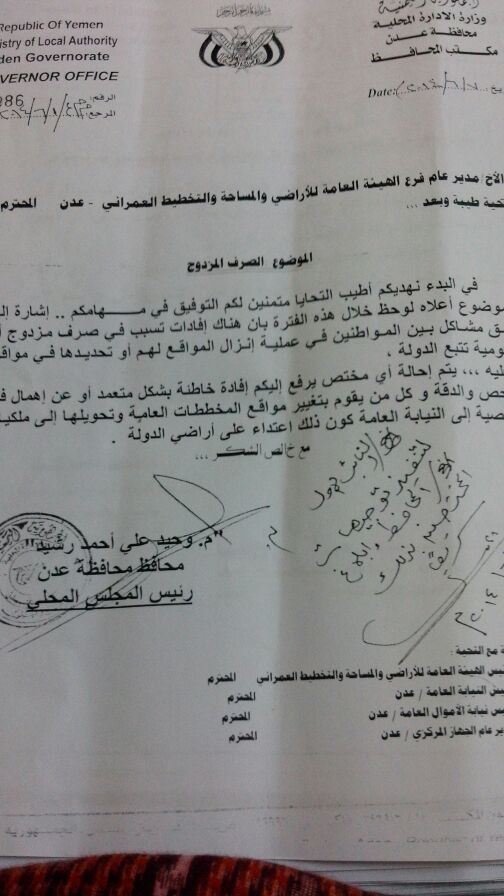 Republic Of Yemen
istry of Local Authority
den Governorate
VERNOR OFFICE
وزارة الادارة المحلية
محافظة عدن
مكتب المحافظ
الرقم:
986
المرجع:
Date:
الأخ/ مدير عام فرع الهيئة العامة للأراضي والمساحة والتخطيط العمراني - عدن المحترم
حية طيبة وبعد ،،،
الموضوع الصرف المزدوج
في البدء نهديكم أطيب التحايا متمنين لكم التوفيق في مهامكم .. إشارة ال
وضوع أعلاه لوحظ خلال هذه الفترة بان هناك إفادات تسبب في صرف مزدوج أ
ق مشاكل بين المواطنين في عملية إنزال المواقع لهم أو تحديدها في مواق
ومية تتبع الدولة ،
ليه ،،، يتم إحالة أي مختص يرفع إليكم إفادة خاطئة بشكل متعمد أو عن إهمال ف
حص والدقة و كل من يقوم بتغيير مواقع المخططات العامة وتحويلها إلى ملكي
صية إلى النيابة العامة كون ذلك اعتداء على أراضي الدولة .
مع خالص الشكر ،،،
الأخ/
لتنفيذ توجيهات
الأخ/ المحافظ
"م. وحيد علي أحمد رشيد"
محافظ محافظة عدن
رئيس المجلس المحلي
ة مع التحية :
يس الهيئة العامة للأراضي والمساحة والتخطيط العمراني المحترم
يس النيابة العامة / عدن المحترم
يس نيابة الأموال العامة / عدن المحترم
ير عام الجهاز المركزي / عدن المحترم